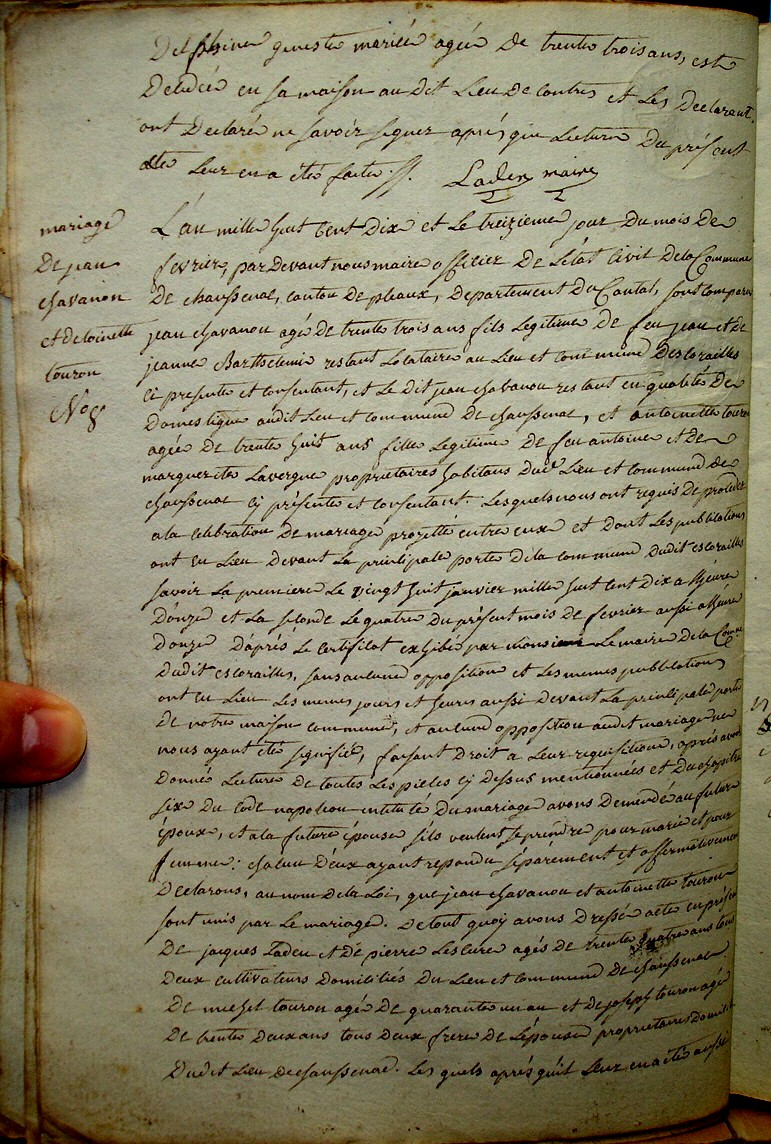 Delphine geneste mariée agée De trente trois ans, est
Decedée en sa maison au dit Lieu De Contres et Les Declarant
ont Declaré ne savoir signer aprés que Lecture Du présent
acte Leur en a été faite ./.
Laden maire
mariage
De jean
chavanon
et de toinette
touron
No 8
L'an mille huit Cent Dix et Le treizieme jour Du mois De
fevrier, par Devant nous maire officier De L'état Civil De la Commune
De chaussenac, canton De pleaux, Departement Du Cantal, sont comparu
jean chavanon agé De trente trois ans fils Legitime De feu jean et de
jeanne Barthelemie restant Locataire au Lieu et commune Descorailles
ci presente et consentant, et Le dit jean chavanon restant en qualité De
Domestique audit Lieu et commune De chaussenac, et antoinette touron
agée De trente huit ans fille Legitime De feu antoine et De
marguerite Lavergne proprietaires habitans dud. Lieu et commune de
chaussenac cy présente et consentant. Lesquels nous ont requis De proceder
a la celebration De mariage projetté entre eux et Dont Les publications
ont eu Lieu Devant La principale porte De la commune dudit escorailles
savoir La premiere Le vingt huit janvier mille huit Cent Dix a L'heure
D'onze et La seconde Le quatre Du présent mois De fevrier aussi a L'heure
Donze D'aprés Le Certificat exhibée par monsieur Le maire De la Comne
Dudit escorailles, sans aucune opposition et Les memes publications
ont eu Lieu Les memes jours et heures aussi Devant La principale porte
De notre maison commune, et aucune opposition audit mariage ne
nous ayant été signifiée, faisant Droit a Leur requisition, aprés avoir
Donné Lecture De toutes Les pieces cy Dessus mentionnées et Du chapitre
six Du Code napoleon intitulé Du mariage avons Demendé au futur
époux, et a la future épouse s'ils veulent se prendre pour marie et pour
femme: chacun D'eux ayant repondu séparément et affirmativement
Declarons, au nom De la Loi, que jean chavanon et antoinette touron
sont unis par Le mariage. De tout quoy avons Dressé acte en présence
De jacques Laden et De pierre Lescure agés de trente quatre ans tous
Deux cultivateurs Domiciliés Du Lieu et commune De chaussenac
De michel touron agé De quarante un an et De joseph touron agé
De trente Deux ans tous Deux frere De L'épouse proprietaires Domicilié
Dudit Lieu De chaussenac. Les quels aprés qu'il Leur en a été aussi